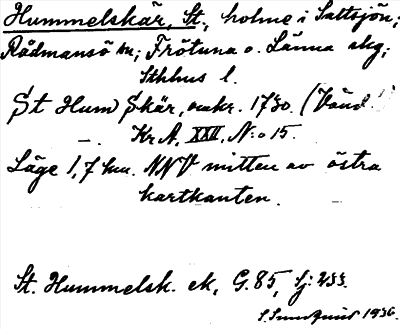 Hummelskär, St., holme i Saltsjön;
Rådmansö sn; Frötuna o. Länna skg;
Sthlms l.
St Hum Skär, omkr. 1730. (Vänd!)
KrA, XXII, N:o 15.
Läge 1,7 km. NNV mitten av östra
kartkanten.
St. Hummelsk. ek, G. 85, Sj: 433.
1936.